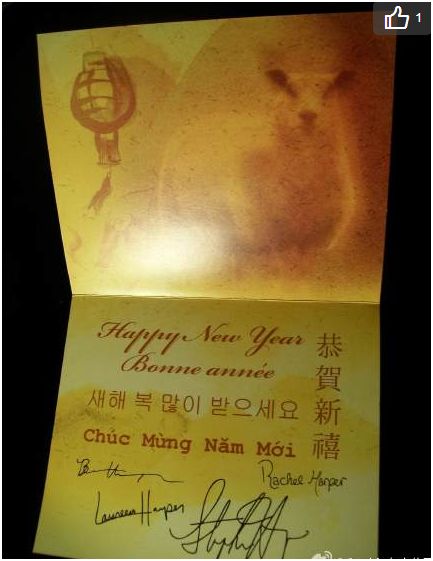 1
Happy New Year
Bonne année
새해 복 많이 받으세요
Chúc Mừng Năm Mới
恭賀新禧
Rachel Harper
Laureen Harper